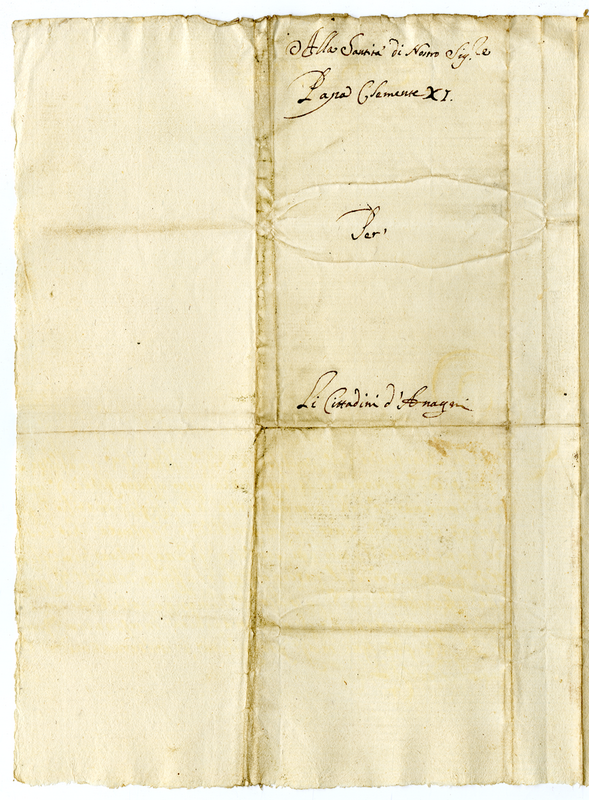 Alla Santità di Nostro Sig.re
Papa Clemente XI.
Per
Li Cittadini d'Anagni